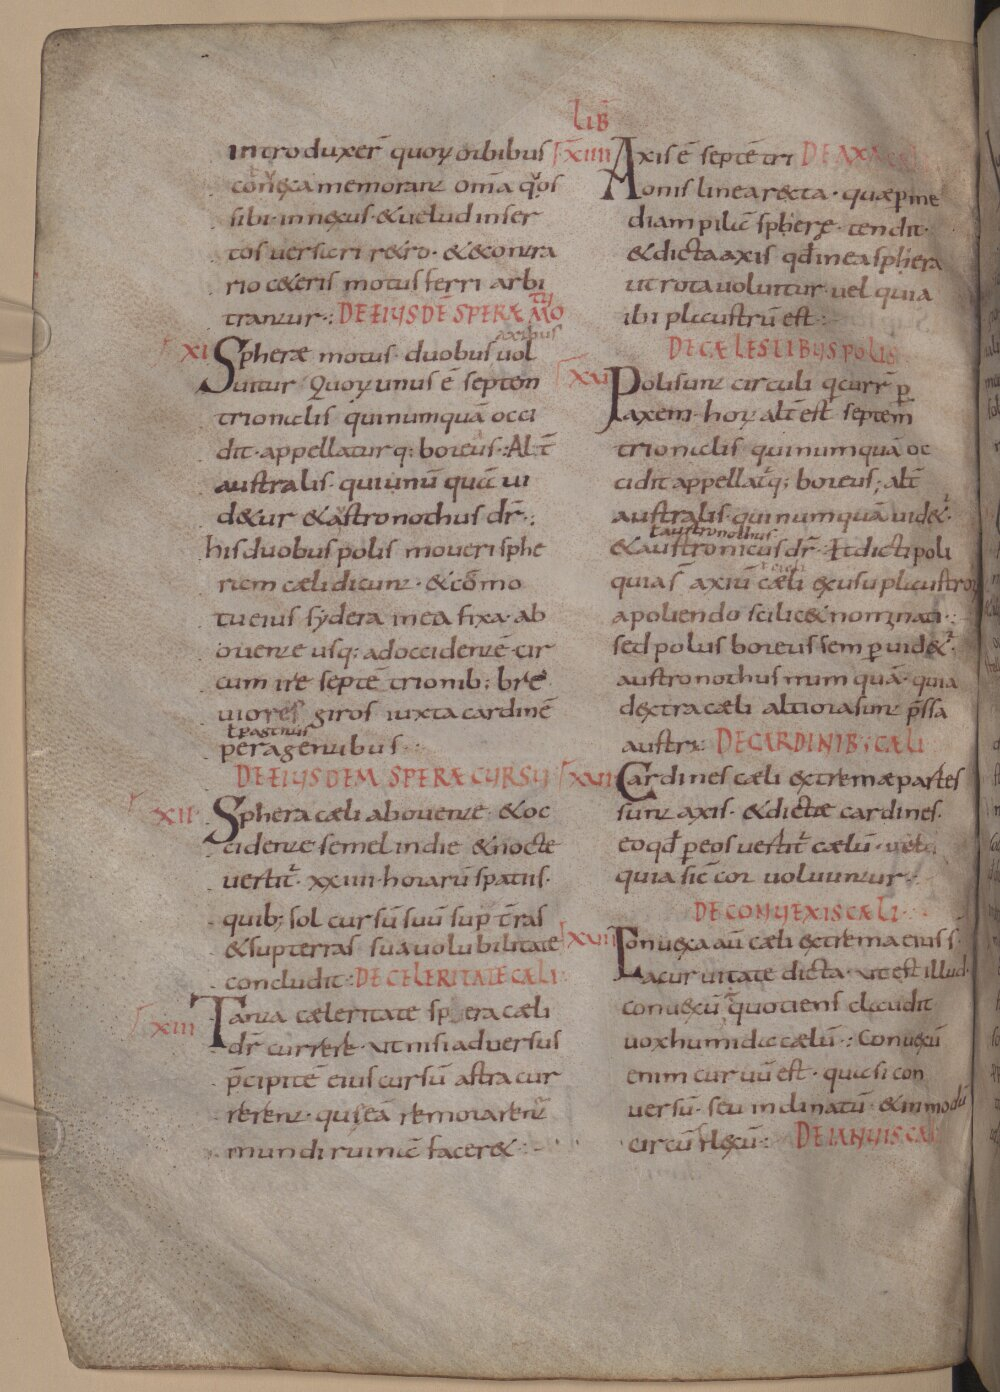 LIB̄
introduxer̄ quoꝝ orbibus
conexa memorant om̄a q̊s
sibi innexus · & uelud inser
tos uersicri retro · & econtra
rio ceteris motus ferri arbi
trantur ·: DE EIUSDĒ SPERÆ MO
TU
XI Spheræ motus duobus
axibus
uol
uitur Quoꝝ unus ē septen
trionalis qui numquā occi
dit · appellatur q; boreus ·: Alt̄
australis · qui unū quā ui
detur & astronothus dr̄ ·:
his duobus polis moueri sphe
ram cæli dicunt · & cō mo
tu eius sydera in ea fixa · ab
oriente usq; ad occidentē cir
cum ire septē trionib; bre
uiores giros iuxta cardinē
peragentibus ·:
DE EIUSDEM SPERÆ CURSU
XII Sphera cæli ab oriente & oc
cidente semel in die & nocte
uertit᷑ · XXIIII · horarū spatiis ·
quib; sol cursū suū sup t̄ras
& sup terras sua uolubilitate
concludit ·: DE CELERITATE CÆLI
XIII Tanta cæleritate sp era cæli
dr̄ currere · ut nisi aduersus
p̄cipitē eius cursū astra cur
rerent · qui eā remorarent᷑
mundi ruinā faceret ·:
XIIII Axis ē septētri DE AXA
onis linea recta · quæ p me
diam pilā spherę tendit ·
& dicta axis qd̄ in ea sphera
ut rota uoluitur uel quia
ibi plaustrū est ·:
DE CÆLESTIBUS POLIS
XXI Poli sunt circuli q currr̄ p
axem · hoꝝ alt̄ est septem
trionalis qui numquā oc
cidit appellat᷑q; boreus; alt̄
australis · qui numquā uidet᷑ ·
ł austronothus
& austronicus dr̄ · Et dicti poli
quia s̄ axiū cæli ex usu plaustro
a poliendo scilicet nominati ·:
sed polus boreus semp uidet᷑ ·
austronothus numquā · quia
dextra cæli altiora sunt p̄ssa
austri · DE CARDINIB; CÆLI
XXII Cardines cæli extremæ partes
sunt axis · & dictæ cardines ·
eo qd̄ p eos uertit᷑ cælū · uel
quia sic̄ cor uoluuntur ·:
DE CONUEXIS CÆLI ·
XXIII Conuexa aū cæli extrema eius s̄
a curuitate dicta · ut est illud ·
conuexū quotiens claudit
nox humida cælū ·: Conuexū
enim curuū est · quasi con
uersū · seu inclinatū & in modū
circū flexū ·: DE IANUIS CÆ